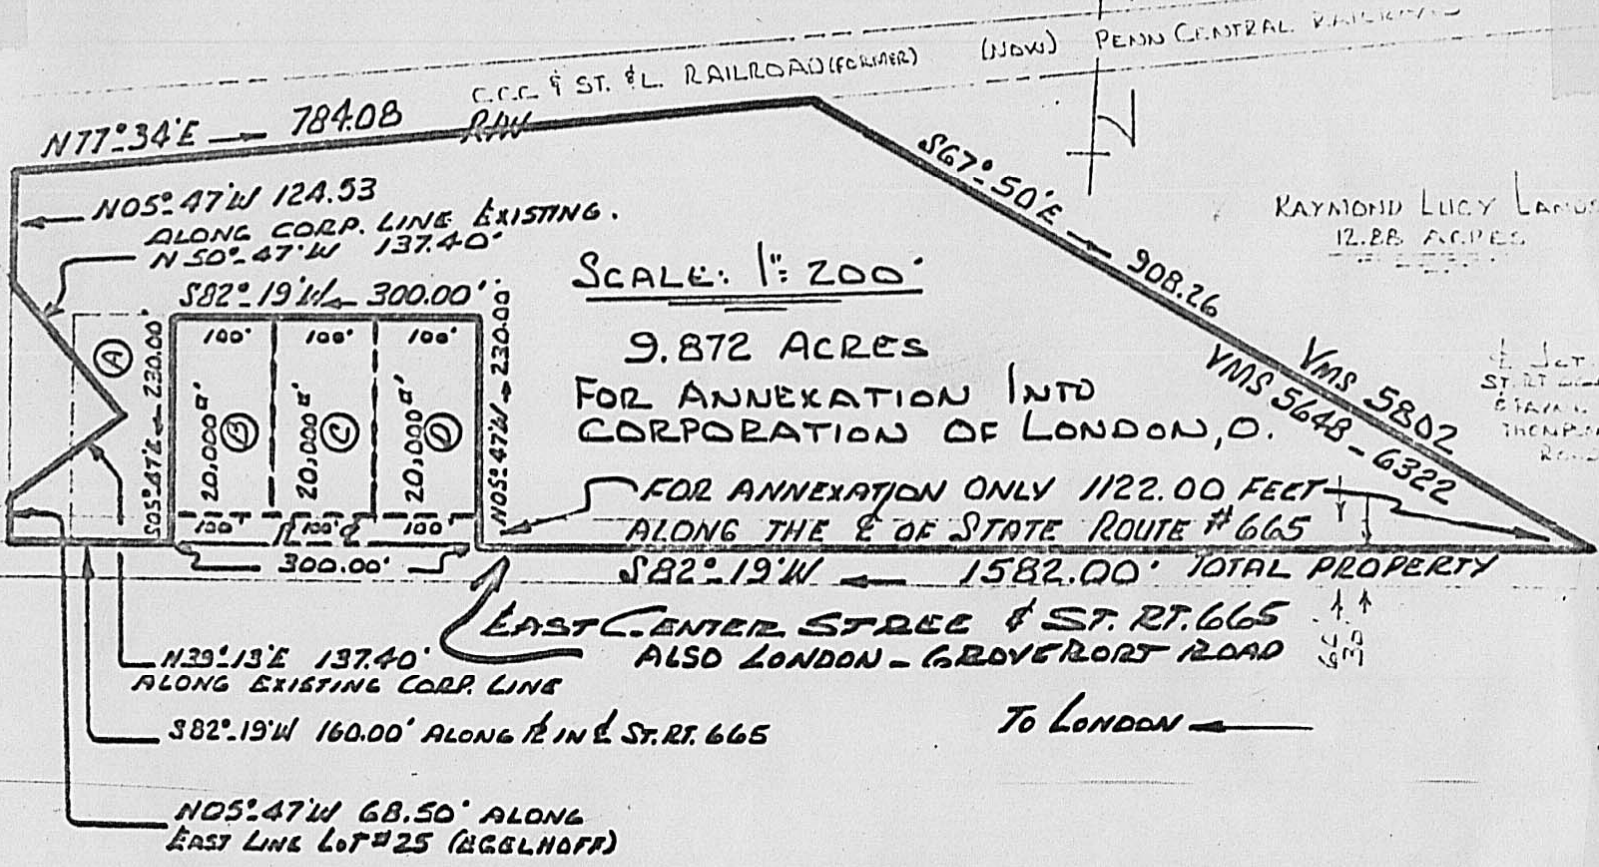 C.C.C. & ST. & L. RAILROAD (FORMER) (NOW) PENN CENTRAL RAILROAD
N77°-34'E 784.08 R/W
N
S67°-50'E 908.26
RAYMOND LUCY
12.88 ACRES
N05°-47'W 124.53
ALONG CORP. LINE EXISTING.
N50°-47'W 137.40'
S82°-19'W 300.00'
SCALE: 1": 200'
9.872 ACRES
FOR ANNEXATION INTO
CORPORATION OF LONDON, O.
VMS 5802
VMS 5648-6322
A
S05°-47'E 230.00'
100' 100' 100'
20,000 □' B
20,000 □' C
20,000 □' D
N05°-47'W 230.00
100' 100' 100'
300.00'
FOR ANNEXATION ONLY 1122.00 FEET
ALONG THE ℄ OF STATE ROUTE #665
S82°-19'W 1582.00' TOTAL PROPERTY
EAST CENTER STREE & ST. RT. 665
ALSO LONDON-GROVERORT ROAD
N39°-13'E 137.40'
ALONG EXISTING CORP. LINE
S82°-19'W 160.00' ALONG ℄ IN ℄ ST. RT. 665
TO LONDON
N05°-47'W 68.50' ALONG
EAST LINE LOT #25 (EGELHOFF)